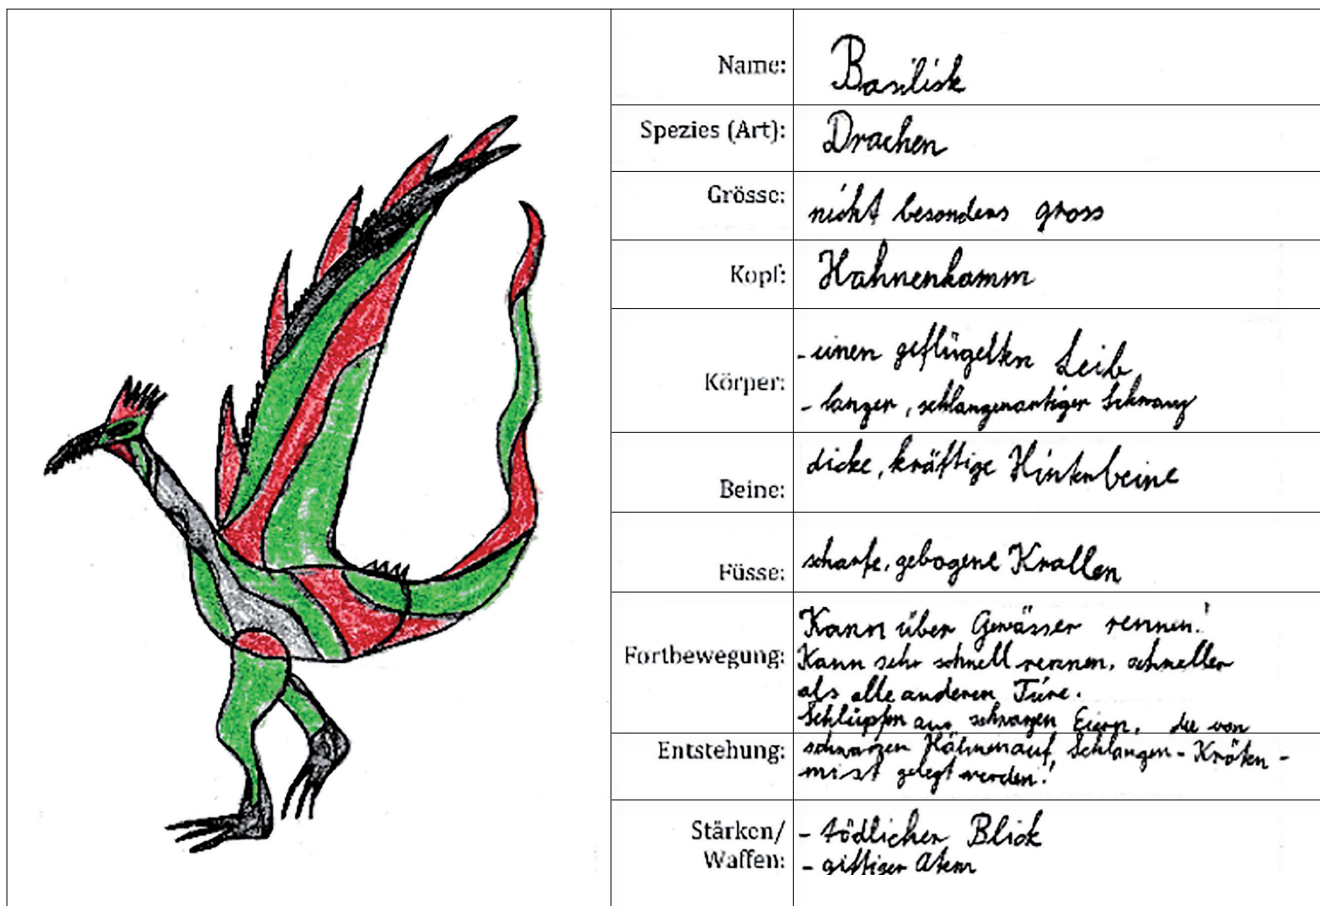 Name: Basilisk
Spezies (Art): Drachen
Grösse: nicht besonders gross
Kopf: Hahnenkamm
Körper: - einen geflügelten Leib
- langer, schlangenartiger Schwanz
Beine: dicke, kräftige Hinterbeine
Füsse: scharfe, gebogene Krallen
Fortbewegung: Kann über Gewässer rennen!
Kann sehr schnell rennen, schneller
als alle anderen Türe.
Entstehung: Schlüpfen aus schwarzen Eiern, die von
schwarzen Hähnen auf Schlangen-Kröten-
mist gelegt werden!
Stärken/
Waffen: - tödlicher Blick
- giftiger Atem